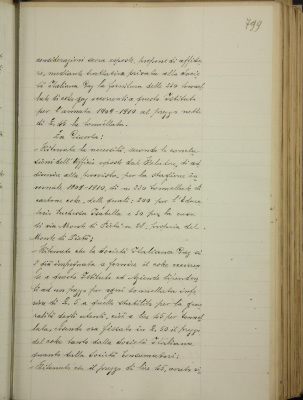 799
considerazioni sovra esposte, propone di affida-
re, mediante trattativa privata alla Socie-
tà Italiana Gaz la fornitura delle 220 tonnel-
late di coke gaz occorrenti a questo Istituto
per l'annata 1909-1910 al prezzo netto
di L. 45 la tonnellata.
La Giunta:
Ritenuta la necessità, secondo le conclu-
sioni dell'Ufficio esposte dal Relatore, di ad-
divenire alla provvista, per la stagione in-
vernale 1909-1910, di n. 220 tonnellate di
carbone coke, delle quali: 200 per l'Educa-
torio Duchessa Isabella e 20 per la casa
di via Monte di Pietà n. 28, propria del
Monte di Pietà;
Ritenuto che la Società Italiana Gaz si
è già impegnata a fornire il coke occorren-
te a questo Istituto ed Aziende dipenden-
ti ad un prezzo per ogni tonnellata infe-
riore di L. 5 a quello stabilito per la gene-
ralità degli utenti, cioè a lire 45 per tonnel-
lata, essendo ora fissato in L. 50 il prezzo
del coke tanto dalla Società Italiana
quanto dalla Società Consumatori;
Ritenuto che il prezzo di lire 45,